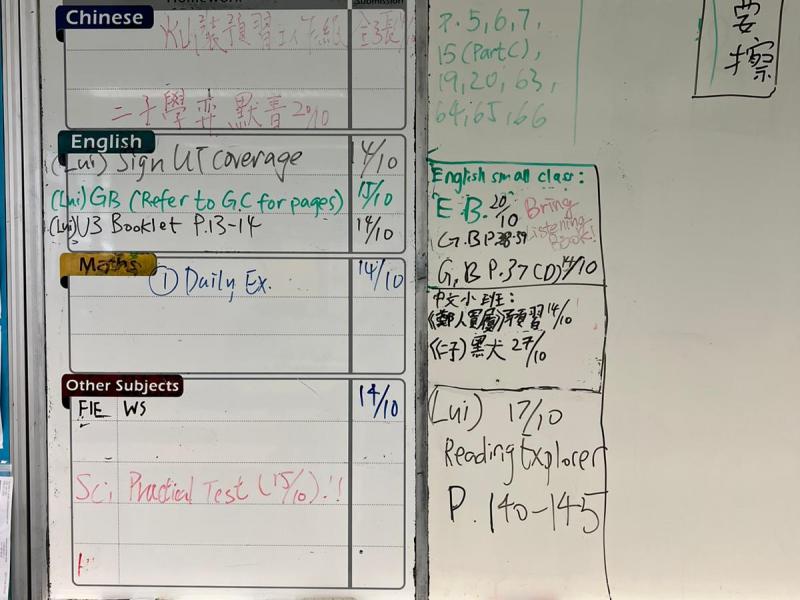 Homework
Submission
Chinese
預習
二子學弈 默書 20/10
English
(Lui) Sign UT coverage 14/10
(Lui) GB (Refer to G.C for pages) 15/10
(Lui) U3 Booklet P.13-14 14/10
Maths
① Daily Ex. 14/10
Other Subjects
FIE WS 14/10
Sci. Practical Test (15/10)!!
P. 5, 6, 7,
15 (Part C),
19, 20, 63,
64, 65, 66
English small class:
E.B. 20/10 Bring Listening Book!
G.B P.38-39
G.B P.37 (D) 14/10
中文小班:
《鄭人買履》預習 14/10
27/10
(Lui) 17/10
Reading Explorer
P. 140-145
要
擦